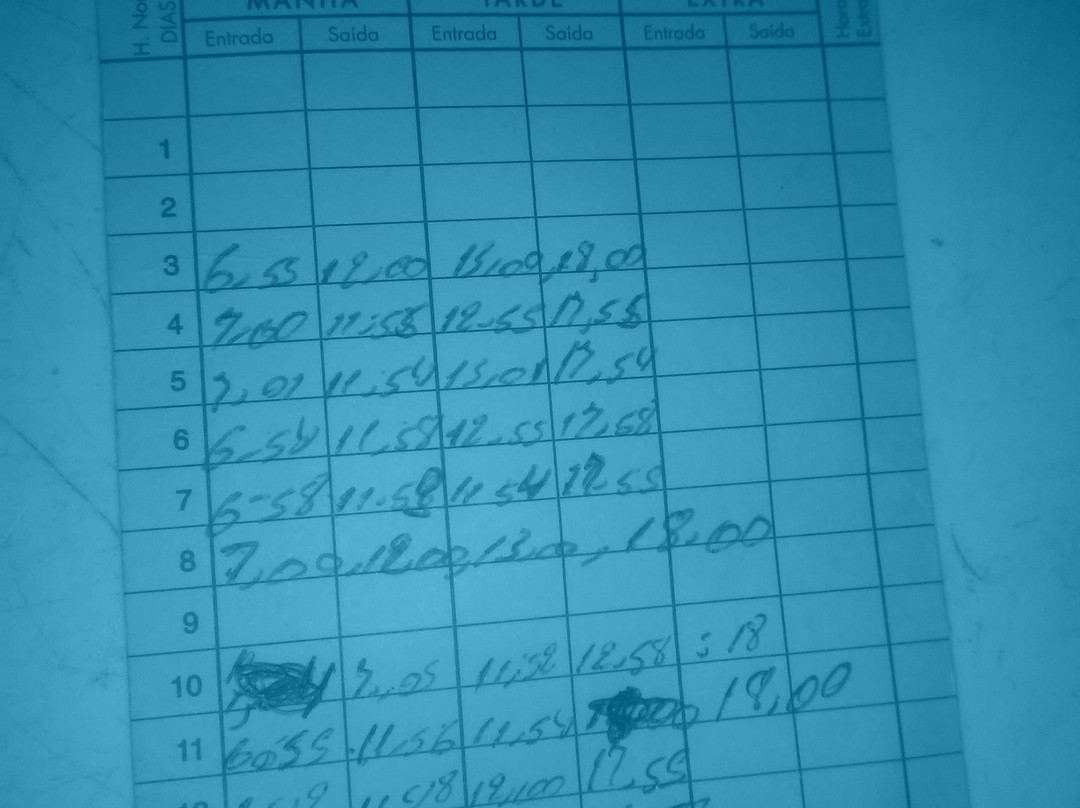 H. Nor MANHÃ TARDE EXTRA Horas
DIAS Entrada Saída Entrada Saída Entrada Saída Extra
1
2
3 6,55 12,00 13,00 18,00
4 7,00 11,55 12-55 17,55
5 7,01 11,54 13,01 17,54
6 6-54 11,58 12-55 17,58
7 6-58 11-58 11 54 17 55
8 7,00 12,00 13,00, 18,00
9
10 7,05 11,52 12,58 : 18
11 6,55 11,56 11,54 18,00
12,00 17,55